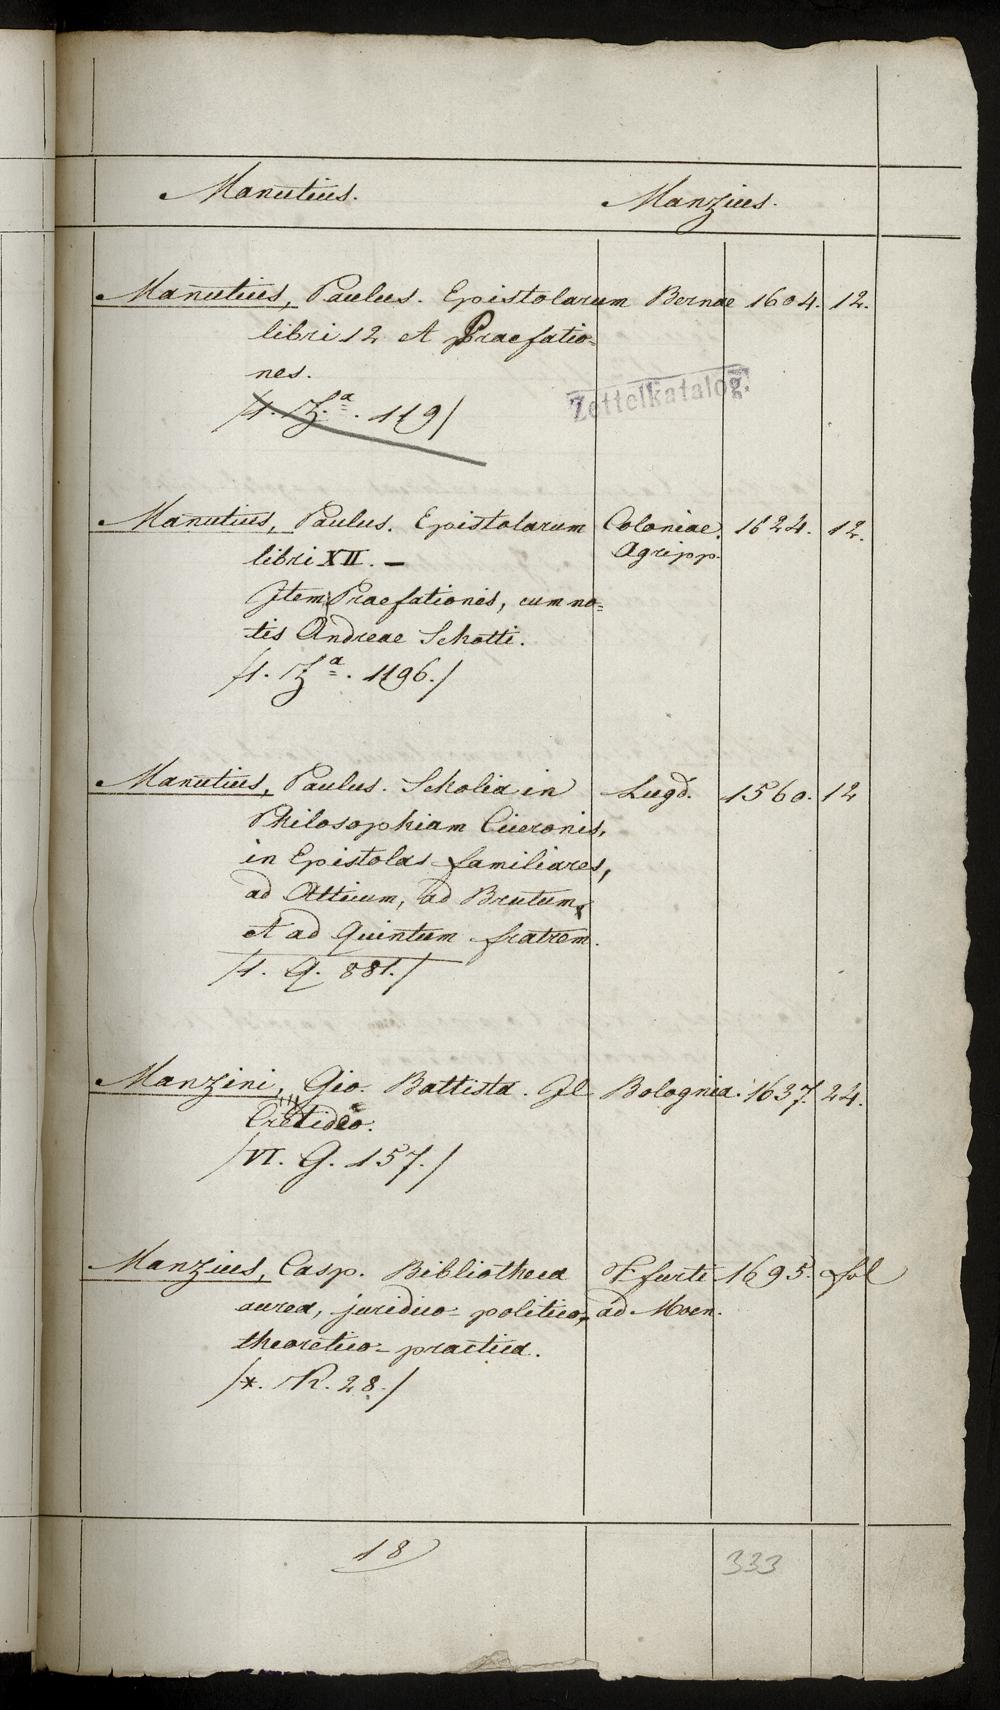 Manutius. Manzius.
Manutius, Paulus. Epistolarum Bernae 1604. 12.
libri 12 et Praefatio=
nes.
Zettelkatalog.
119/
Manutius, Paulus. Epistolarum Coloniae 1624. 12.
libri XII. – Agripp.
Item Praefationis, cum no=
tis Andreae Schotti.
1196./
Manutius, Paulus. Scholia in Lugd. 1560. 12
Philosophiam Ciceronis,
in Epistolas familiares,
ad Atticum, ad Brutum,
et ad Quintum fratrem.
Q. 881./
Manzini, Gio. Battista. Il Bologna. 1637. 24.
Cretideo.
/VI. G. 157./
Manzius, Casp. Bibliotheca Ffurti 1695. fol
aurea, juridico- politico, ad Moen.
theoretico- practica.
/*. R. 28./
18 333